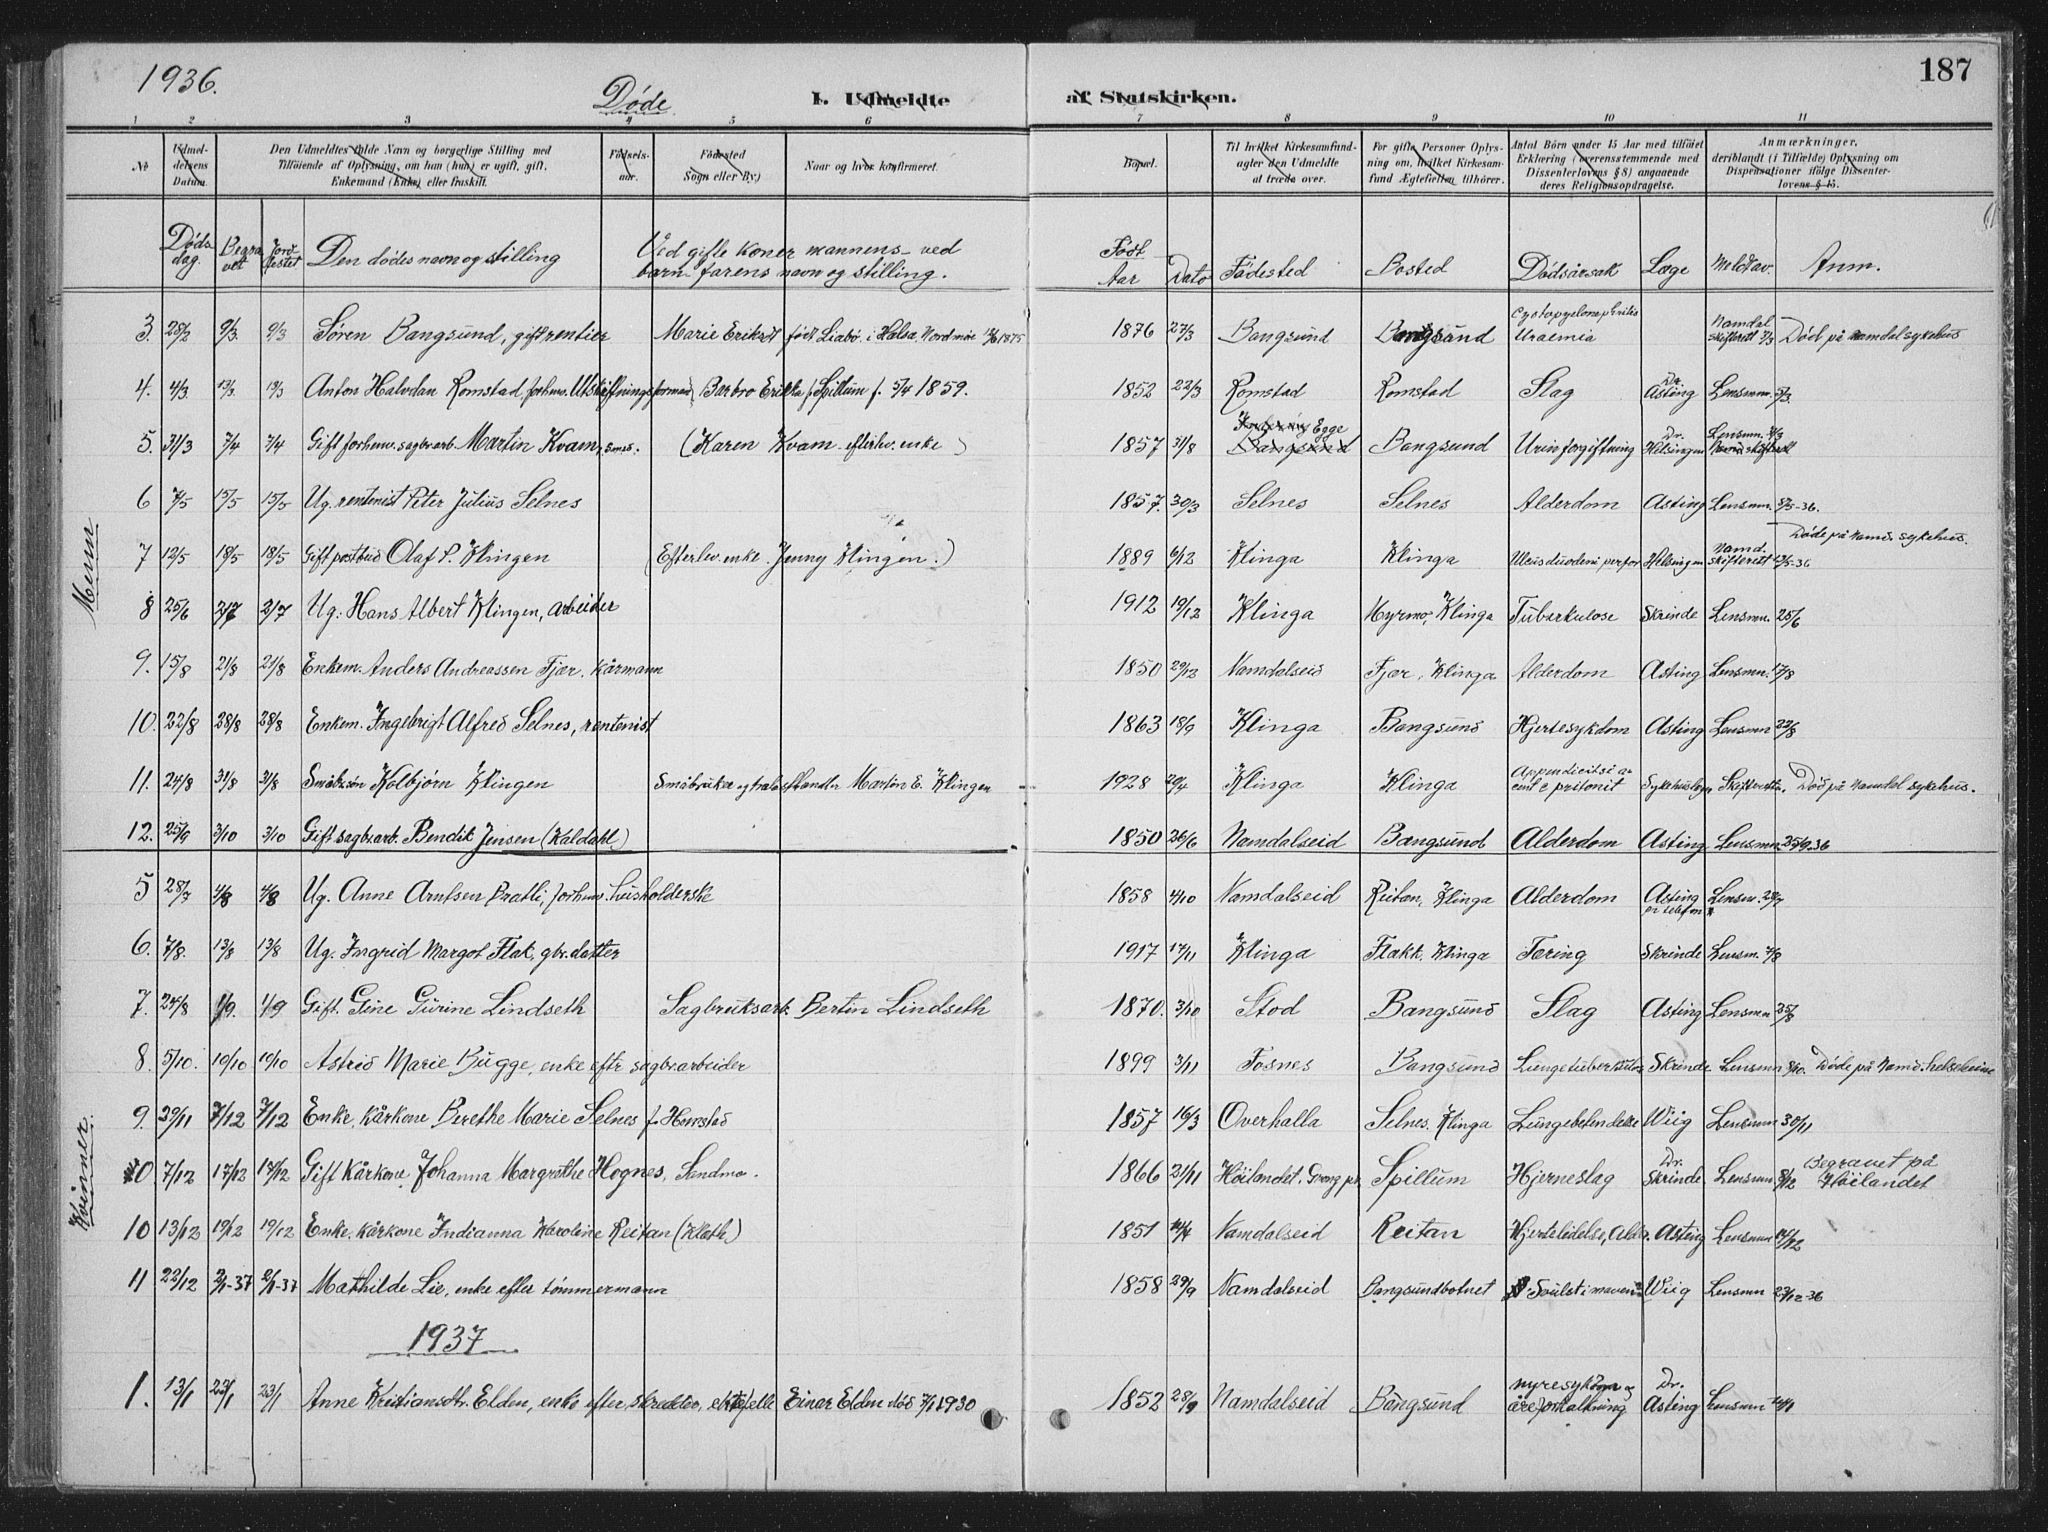 1936.
Døde
I. Udmeldte af Statskirken.
187
1 2 3 4 5 6 7 8 9 10 11
No
Udmeldelsens Datum.
Den Udmeldtes fulde Navn og borgerlige Stilling med Tilføiende af Oplysning, om han (hun) er ugift, gift, Enkemand (Enke) eller fraskilt.
Fødselsaar.
Fødested Sogn eller By.)
Naar og hvor konfirmeret.
Bopæl.
Til hvilket Kirkesamfund agter den Udmeldte at træde over.
For gifte Personer Oplysning om, hvilket Kirkesamfund Ægtefællen tilhører.
Antal Börn under 15 Aar med tilføiet Erklæring (overensstemmende med Dissenterlovens § 8) angaaende deres Religionsopdragelse.
Anmærkninger, deriblandt (i Tilfælde) Oplysning om Dispensationer ifølge Dissenterlovens § 15.
Døds dag. Begravet Jordfestet Den dødes navn og stilling Ved gifte koner mannens - ved barn farens navn og stilling. Født Aar Dato Fødested Bosted Dødsårsak Læge Meldt av Anm.
Menn
3. 28/2 9/3. 9/3 Søren Bangsund, gift rentier Marie Eriksdt født Liabø i Halsa, Nordmøre 1875 1876 27/3 Bangsund Bangsund Cystopyelonephritis Uraemia Namdal skifterett Død på Namdal sykehus
4. 4/3 13/3 13/3 Anton Halvdan Romstad forhenv. Utskiftningsformand, Barbro Erikka f. Spillum f. 5/4 1859. 1852 22/3 Romstad Romstad Slag Dr. Asting Lensmn. 5/3.
5. 31/3 7/4 7/4 Gift forhenv. sagbr.arb. Martin Kvam, (Karen Kvam efterlev. enke) 1857 31/8 Egge Bangsund Bangsund Urinforgiftning Dr. Helsingen Lensmn.
6 7/5 15/5 15/5 Ug. rentenist Peter Julius Selnes 1857. 30/3 Selnes Selnes Alderdom Asting Lensmn. 8/5-36.
7 12/5 18/5 18/5 Gift postbud Olaf P. Klingen (Efterlev. enke Jenny Klingen.) 1889 6/12 Klinga Klinga Ulcus duodeni perfor Helsingen Namd. skifterett Døde på Namd. sykehus.
8 25/6 2/7 2/7 Ug. Hans Albert Klingen, arbeider 1912 19/12 Klinga Myrmo, Klinga Tuberkulose Skrinde Lensmn. 25/6
9. 15/8 21/8 21/8 Enkem. Anders Andreassen Fjær. Kårmann 1850 29/12 Namdalseid Fjær, Klinga Alderdom Asting Lensmn. 17/8
10. 22/8 28/8 28/8 Enkem. Ingebrigt Alfred Selnes, rentenist 1863 18/9 Klinga Bangsund Hjertesykdom Asting Lensmn 22/8
11. 24/8 31/8 31/8 Småbr.søn Kolbjørn Klingen Småbruker og Martin E. Klingen 1928 29/4 Klinga Klinga Sykehuslegen Skifteretten. Død på Namdal sykehus.
12. 25/9 3/10 3/10 Gift sagbr.arb. Bendik Jensen (Kaldahl) 1850 26/6 Namdalseid Bangsund Alderdom Asting Lensmn 25/9.36
Kvinner.
5 28/7 4/8 4/8 Ug. Anne Arntsen Bratli, forhenv. husholderske 1858 4/10 Namdalseid Reitan, Klinga Alderdom Asting pr telefon Lensm. 29/7
6. 7/8. 13/8 13/8 Ug. Ingrid Margot Flak, gbr.datter 1917 17/11 Klinga Flakk, Klinga Tæring Skrinde Lensm. 7/8
7. 24/8 1/9. 1/9 Gift. Gine Gurine Lindseth Sagbruksarb. Bertin Lindseth 1870. 3/10 Stod Bangsund Slag Asting Lensmn 25/8
8. 5/10. 10/10 10/10 Astrid Marie Bugge, enke eftr sagbr.arbeider 1899 3/11 Fosnes Bangsund Lungetuberkulose Skrinde Lensmn 8/10. Døde på Namd. helseheim
9. 29/11 7/12 7/12 Enke, Kårkone Berethe Marie Selnes f. Homstad 1857 16/3 Overhalla Selnes, Klinga Lungebetendelse Wiig Lensmn 30/11
10 7/12 17/12 17/12 Gift Kårkone, Johanna Margrethe Hognes, Sandmo. 1866 21/11 Høilandet, Grong pr. Spillum Hjerneslag Dr. Skrinde Lensmn 8/12 Begravet på Høilandet
10 13/12 19/12 19/12 Enke, Kårkone Indianna Karoline Reitan (Klæth) 1851 Namdalseid Reitan Hjertelidelse, Alder. Asting Lensmn 14/12
11 22/12 2/1-37 2/1-37 Mathilde Lie, enke efter tømmermann 1858 29/9 Namdalseid Bangsundbotnet Svulst i maven Wiig Lensmn 23/12-36
1937
1. 13/1 23/1 23/1 Anne Kristiansdtr. Elden, enke efter skredder, Einar Elden død 1930 1852 28/9 Namdalseid Bangsund nyresykdom og åreforkalkning Dr. Asting Lensmn 14/1